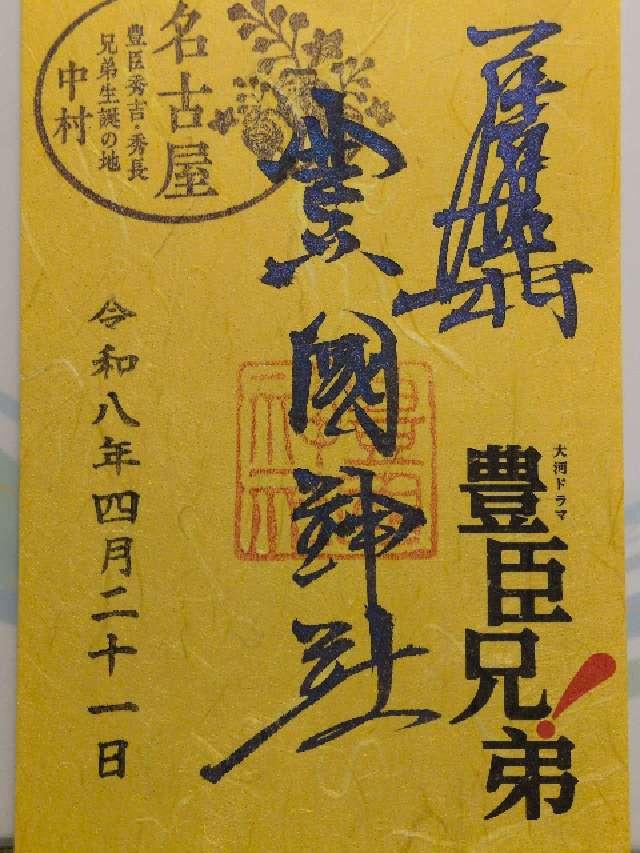 大河ドラマ
豊臣兄弟!
豊國神社
名古屋
豊臣秀吉・秀長
兄弟生誕の地
中村
令和八年四月二十一日